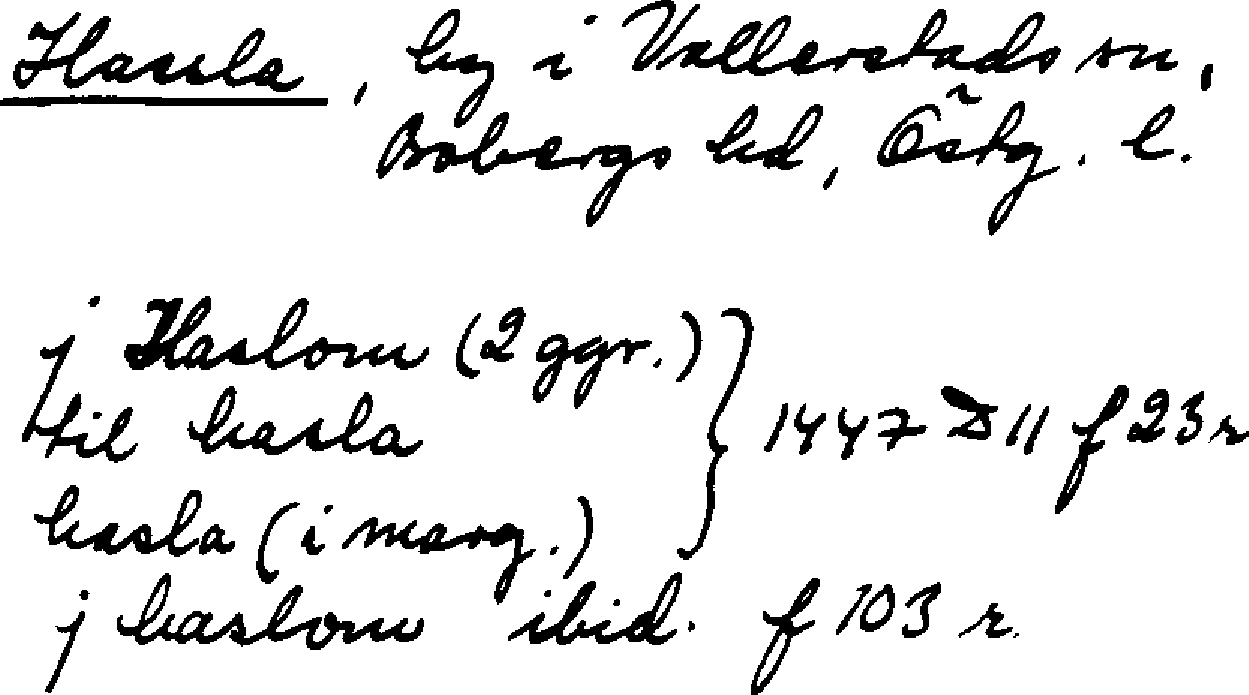 Hassla, by i Vallerstads sn,
Bobergs hd, Östg. l.
j Haslom (2 ggr.)
til hasla } 1447 D 11 f 23 r
hasla (i marg.)
j haslom ibid. f 103 r.